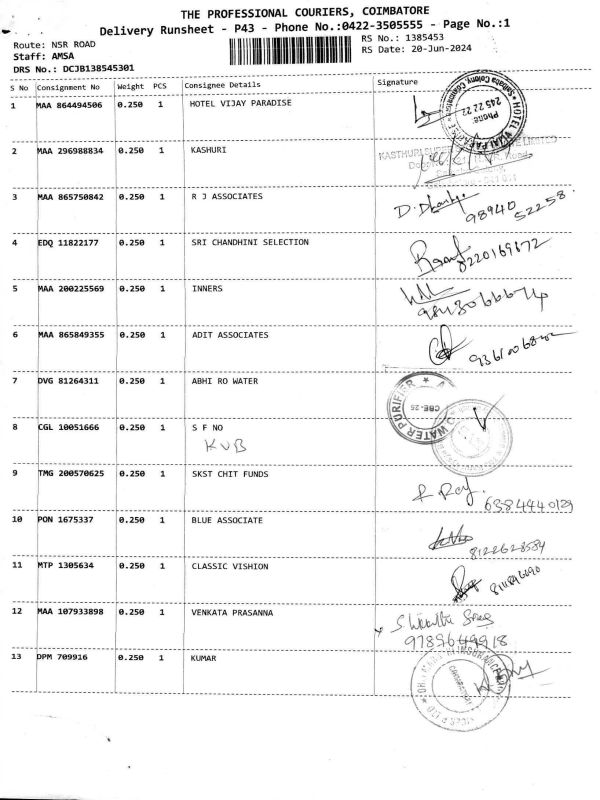 THE PROFESSIONAL COURIERS, COIMBATORE
Delivery Runsheet - P43 - Phone No.:0422-3505555 - Page No.:1
Route: NSR ROAD
RS No.: 1385453
Staff: AMSA
RS Date: 20-Jun-2024
DRS No.: DCJB138545301
S No Consignment No Weight PCS Consignee Details Signature
1 MAA 864494506 0.250 1 HOTEL VIJAY PARADISE
Phone: 245 22 22
2 MAA 296988834 0.250 1 KASHURI
3 MAA 865750842 0.250 1 R J ASSOCIATES
98940 52258
4 EDQ 11822177 0.250 1 SRI CHANDHINI SELECTION
8220169672
5 MAA 200225569 0.250 1 INNERS
6 MAA 865849355 0.250 1 ADIT ASSOCIATES
7 DVG 81264311 0.250 1 ABHI RO WATER
WATER PURIFIER
CBE-25
8 CGL 10051666 0.250 1 S F NO
KVB
9 TMG 200570625 0.250 1 SKST CHIT FUNDS
6384440129
10 PON 1675337 0.250 1 BLUE ASSOCIATE
8122628584
11 MTP 1305634 0.250 1 CLASSIC VISHION
12 MAA 107933898 0.250 1 VENKATA PRASANNA
9789649918
13 DPM 709916 0.250 1 KUMAR